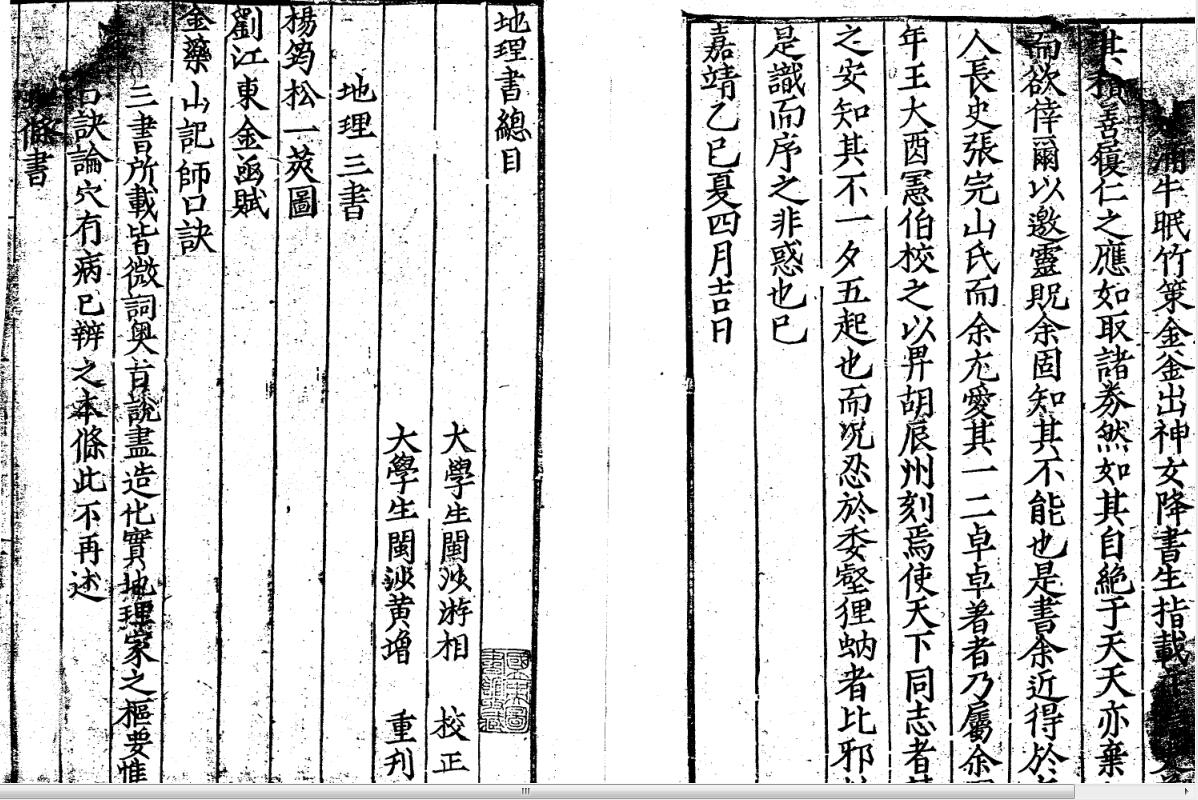 涌牛眠竹策金釜出神女降書生指載
其指善履仁之應如取諸券然如其自絶于天天亦棄
而欲倖爾以邀靈貺余固知其不能也是書余近得於
人長史張完山氏而余尤愛其一二卓卓著者乃屬余
年王大酉憲伯校之以畀胡辰州刻焉使天下同志者
之安知其不一夕五起也而況忍於委壑狸蚋者比邪
是識而序之非惑也已
嘉靖乙巳夏四月吉日
地理書總目
大學生閩沙游相 校正
大學生閩沙黄增 重刋
地理三書
楊筠松一莢圖
劉江東金函賦
金藥山記師口訣
三書所載皆微詞奥旨說盡造化實地理家之樞要惟
口訣論穴有病已辨之本條此不再述
條書